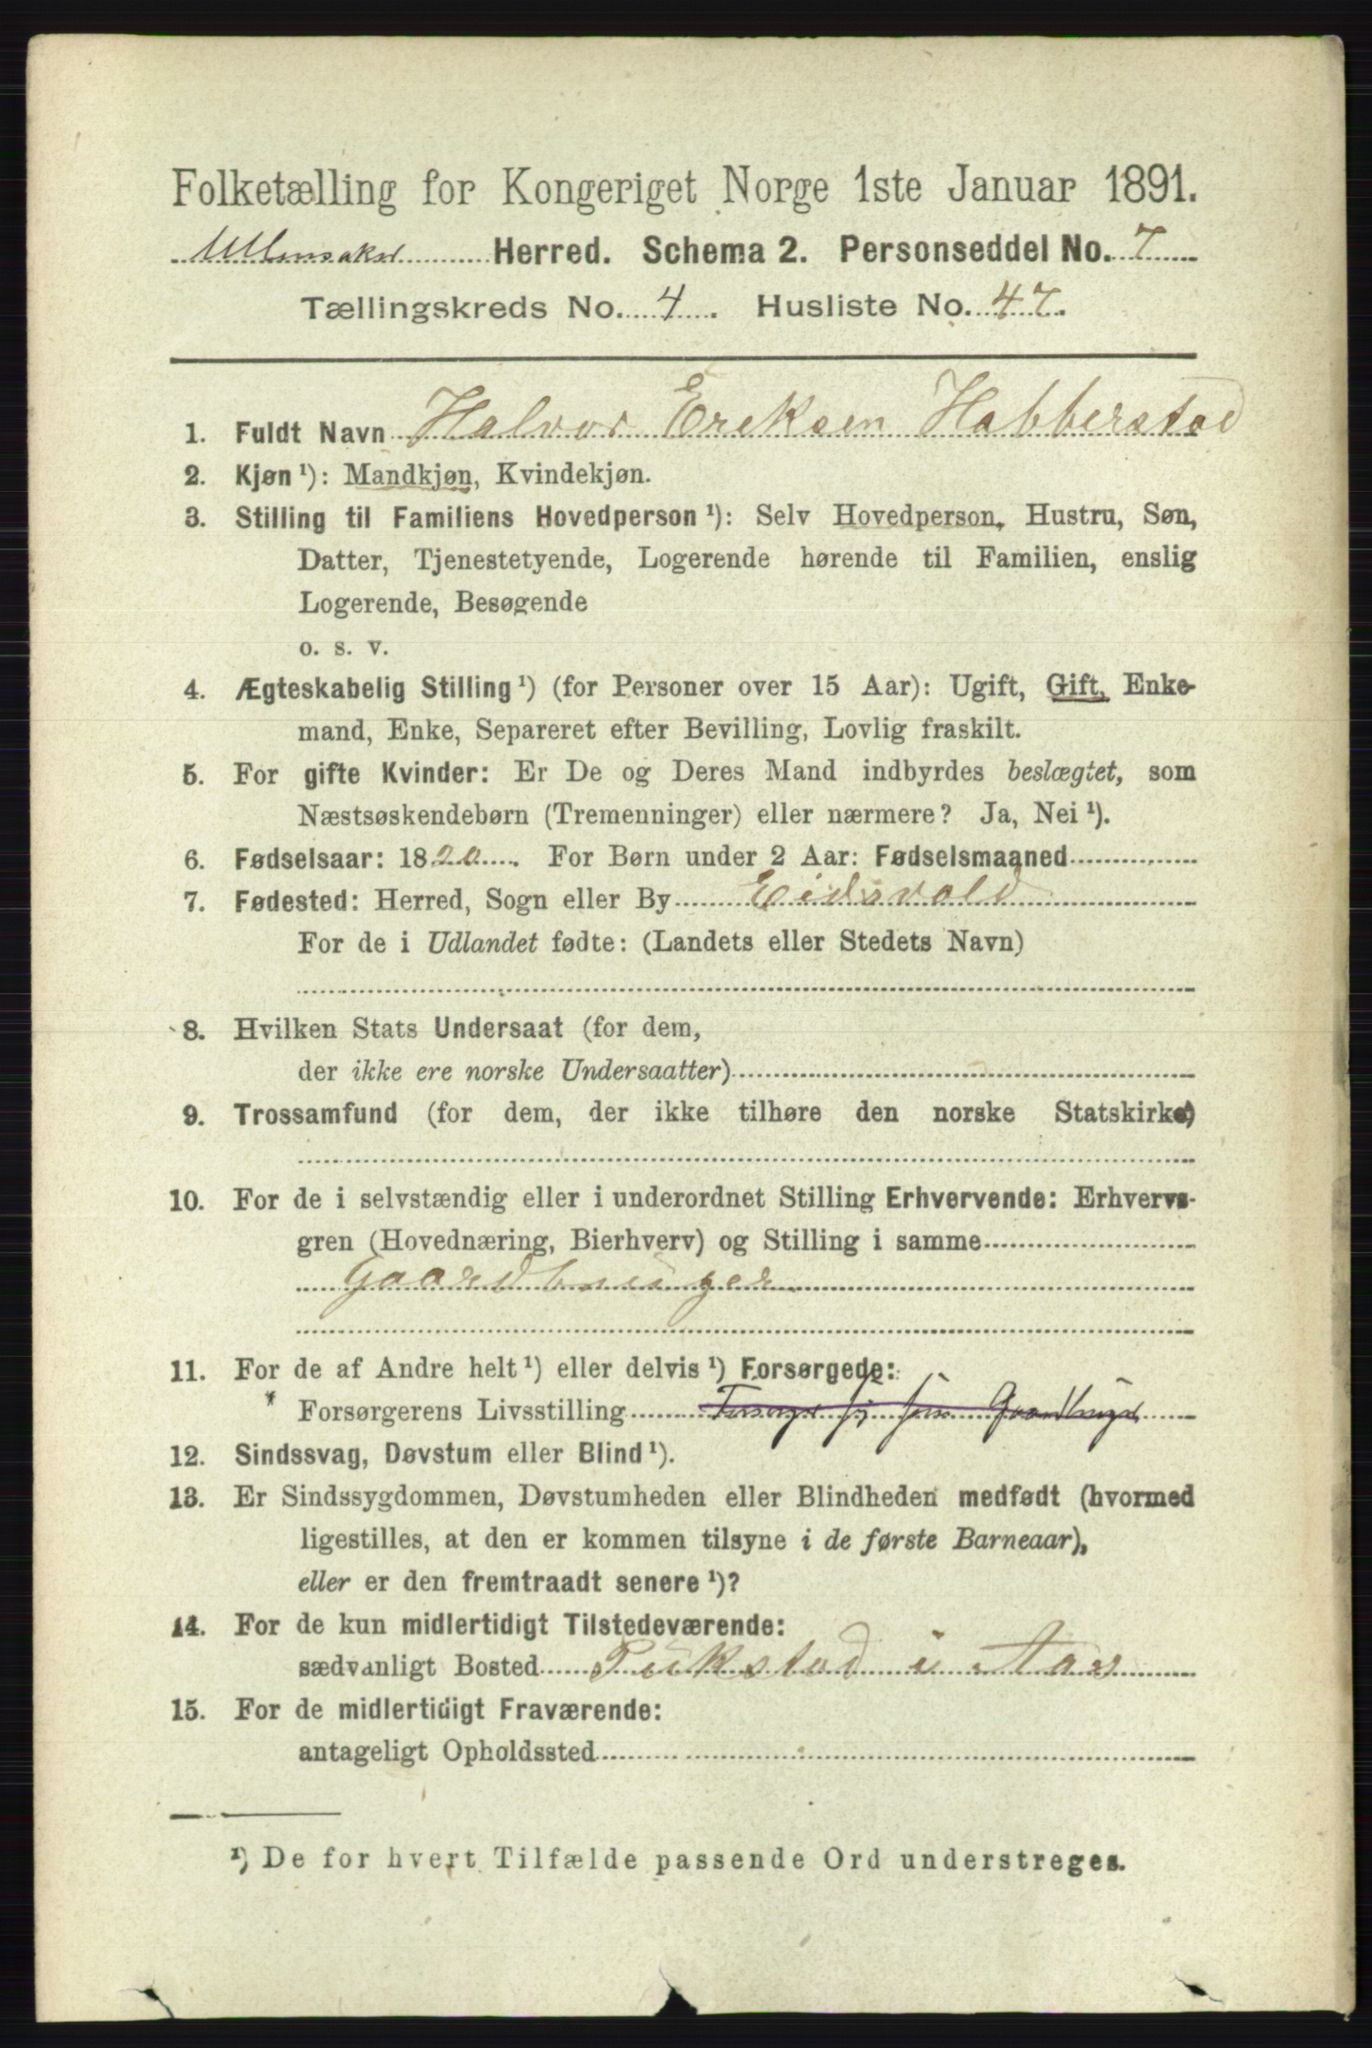 Folketælling for Kongeriget Norge 1ste Januar 1891.
Ullensaker Herred. Schema 2. Personseddel No. 7
Tællingskreds No. 4. Husliste No. 47.
1. Fuldt Navn Halvor Eriksen Habberstad
2. Kjøn ¹): Mandkjøn, Kvindekjøn.
3. Stilling til Familiens Hovedperson ¹): Selv Hovedperson, Hustru, Søn,
Datter, Tjenestetyende, Logerende hørende til Familien, enslig
Logerende, Besøgende
o. s. v.
4. Ægteskabelig Stilling ¹) (for Personer over 15 Aar): Ugift, Gift, Enke-
mand, Enke, Separeret efter Bevilling, Lovlig fraskilt.
5. For gifte Kvinder: Er De og Deres Mand indbyrdes beslægtet, som
Næstsøskendebørn (Tremenninger) eller nærmere? Ja, Nei ¹).
6. Fødselsaar: 1820. For Børn under 2 Aar: Fødselsmaaned
7. Fødested: Herred, Sogn eller By Eidsvold
For de i Udlandet fødte: (Landets eller Stedets Navn)
8. Hvilken Stats Undersaat (for dem,
der ikke ere norske Undersaatter)
9. Trossamfund (for dem, der ikke tilhøre den norske Statskirke)
10. For de i selvstændig eller i underordnet Stilling Erhvervende: Erhvervs-
gren (Hovednæring, Bierhverv) og Stilling i samme
Gaardbruger
11. For de af Andre helt ¹) eller delvis ¹) Forsørgede:
Forsørgerens Livsstilling
12. Sindssvag, Døvstum eller Blind ¹).
13. Er Sindssygdommen, Døvstumheden eller Blindheden medfødt (hvormed
ligestilles, at den er kommen tilsyne i de første Barneaar),
eller er den fremtraadt senere ¹)?
14. For de kun midlertidigt Tilstedeværende:
sædvanligt Bosted i
15. For de midlertidigt Fraværende:
antageligt Opholdssted
¹) De for hvert Tilfælde passende Ord understreges.